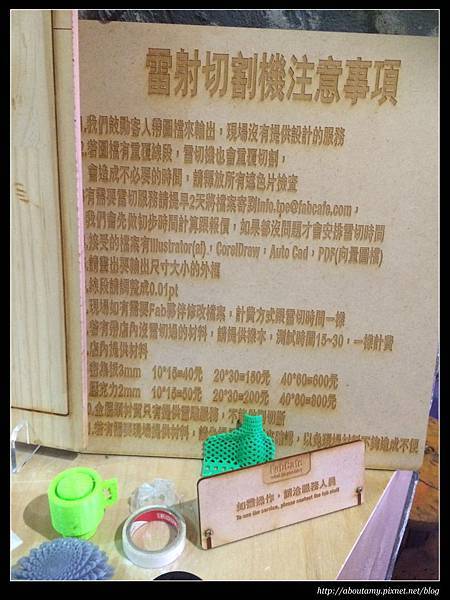 雷射切割機注意事項
.我們鼓勵客人帶圖檔來輸出，現場沒有提供設計的服務
.若圖檔有重覆線段，雷切機也會重覆切割，
會造成不必要的時間，請釋放所有填色片檢查
有需要雷切服務請提早2天將檔案寄到info.tpe@fabcafe.com，
我們會先做初步時間計算跟報價，如果都沒問題才會安排雷切時間
.接受的檔案有Illustrator(ai)、CorelDraw，Auto Cad，PDF(向量圖檔)
.請畫出要輸出尺寸大小的外框
.線段請調整成0.01pt
.現場如有需要Fab夥伴修改檔案，計費方式跟雷切時間一樣
.若有帶店內沒雷切過的材料，請提供樣本，測試時間15~30，一樣計費
.店內提供材料
密集板3mm 10*15=40元 20*30=150元 40*60=600元
壓克力2mm 10*15=50元 20*30=200元 40*60=800元
0.金屬類材質只有提供雷雕服務，不
1.若有需要現場提供材料，請 以免現場材料不夠造成不便
FabCafe
如需操作，請洽服務人員
To use the service, please contact the fab staff
http://aboutamy.pixnet.net/blog